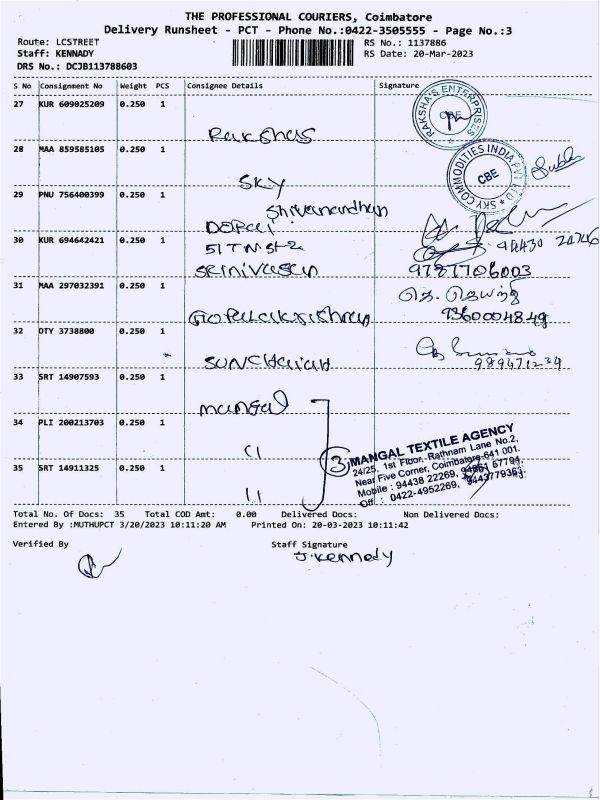 THE PROFESSIONAL COURIERS, Coimbatore
Delivery Runsheet - PCT - Phone No.:0422-3505555 - Page No.:3
Route: LCSTREET
Staff: KENNADY
DRS No.: DCJB113788603
RS No.: 1137886
RS Date: 20-Mar-2023
S No Consignment No Weight PCS Consignee Details Signature
27 KUR 609025209 0.250 1
Rakshas
RAKSHA'S ENTERPRISES
CBE
28 MAA 859585105 0.250 1
SKY
SKY COMMODITIES INDIA PVT LTD
CBE
29 PNU 756400399 0.250 1
Shivanandhan
30 KUR 694642421 0.250 1
Srinivasan
9787706003
31 MAA 297032391 0.250 1
Gopalakrishnan
9360004849
32 DTY 3738800 0.250 1
33 SRT 14907593 0.250 1
mangal
34 PLI 200213703 0.250 1
"
35 SRT 14911325 0.250 1
"
3
MANGAL TEXTILE AGENCY
24/25, 1st Floor, Rathnam Lane No.2,
Near Five Corner, Coimbatore-641 001.
Mobile : 94438 22269,
Off : 0422-4952269,
Total No. Of Docs: 35 Total COD Amt: 0.00 Delivered Docs: Non Delivered Docs:
Entered By :MUTHUPCT 3/20/2023 10:11:20 AM Printed On: 20-03-2023 10:11:42
Verified By Staff Signature
J.Kennedy